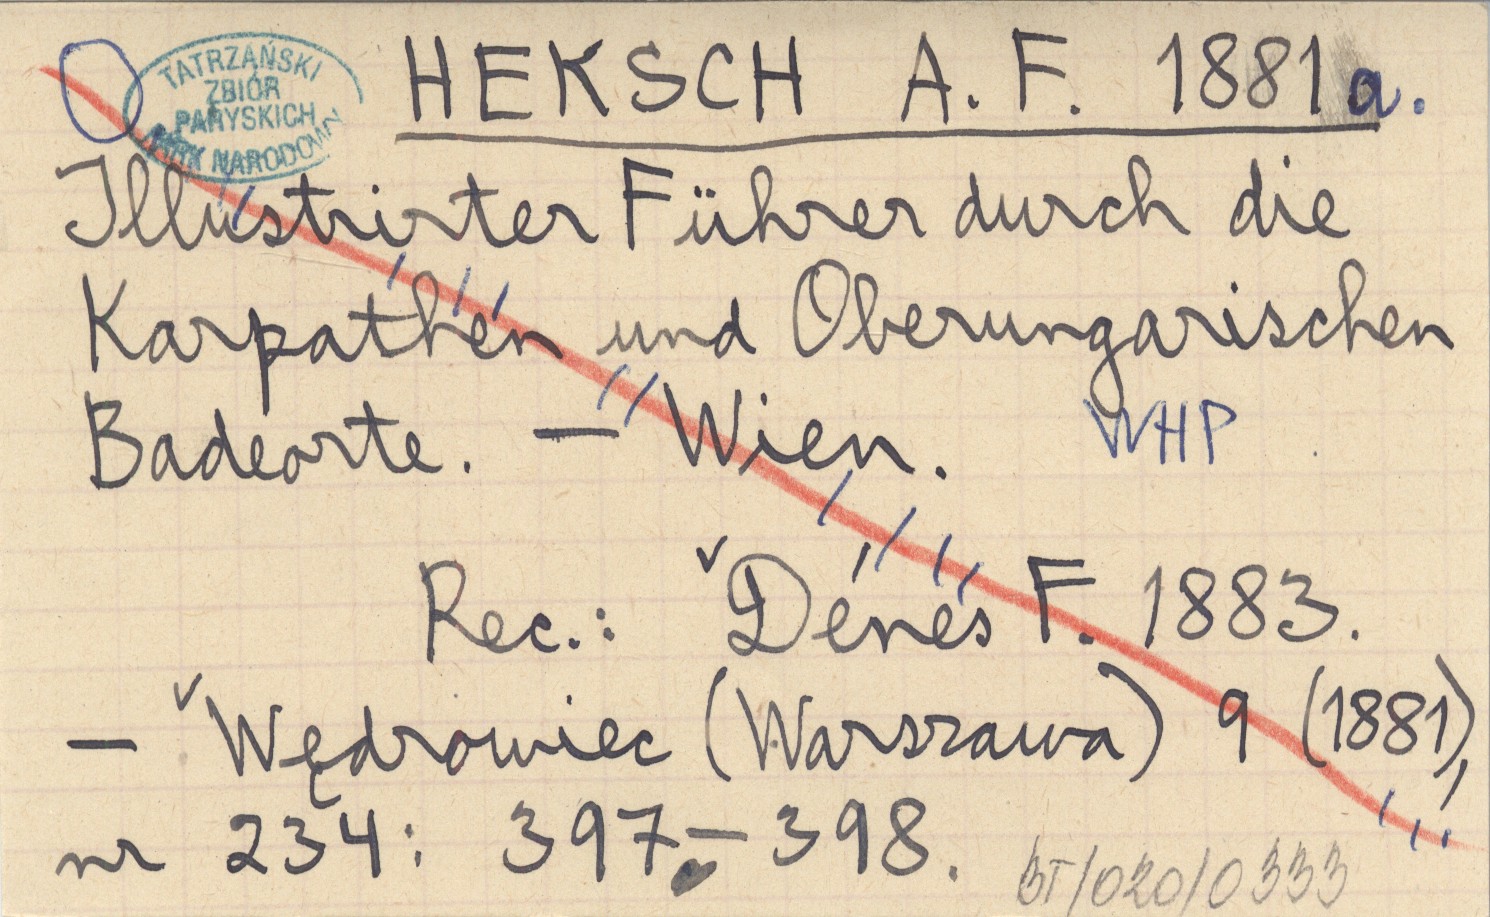 TATRZAŃSKI
ZBIÓR
PARYSKICH
PARK NARODOWY
HEKSCH A. F. 1881a.
Illustrirter Führer durch die
Karpathen und Oberungarischen
Badeorte. — Wien.
WHP
Rec.: Dénes F. 1883.
— Wędrowiec (Warszawa) 9 (1881),
nr 234: 397–398.
BT/020/0333